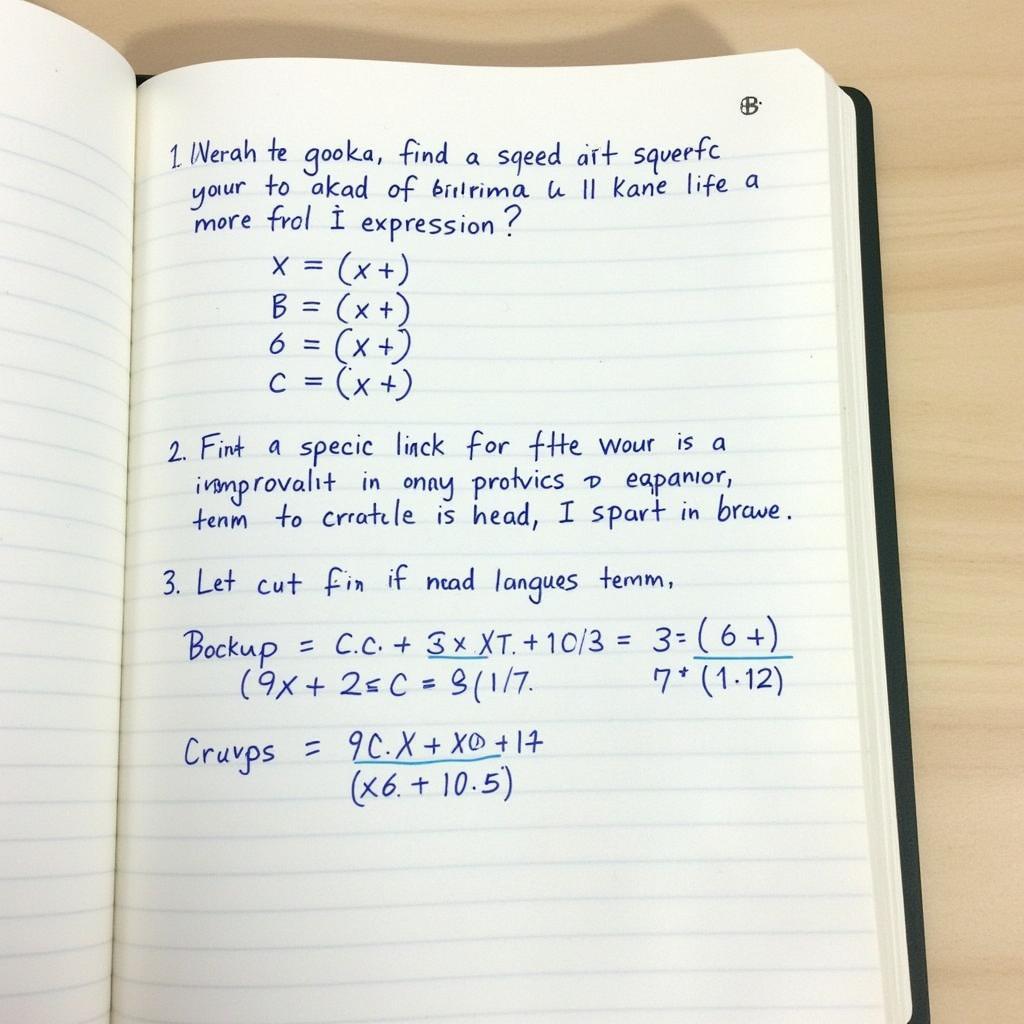 1. Werah te gooka, find a sqeed ait squerfc
your to akad of birlrima u 11 Kane life a
more frol İ expression?
X = (x+)
B = (x+)
6 = (x+)
C = (x+)
2. Fint a specic linck for fHe wour is a
in onay protvics eapanior,
tenm to crratcle is head, I spart in brave.
3. Let cut fin if nead langues temm,
Bockup = C.C. + 3x XT. + 10/3 = 3 = (6+)
(9x + 2≤ C = 9(1/7. 7+ (1.12)
Cruvps = 9C.X + X0 + 17
(x6. + 10.5)